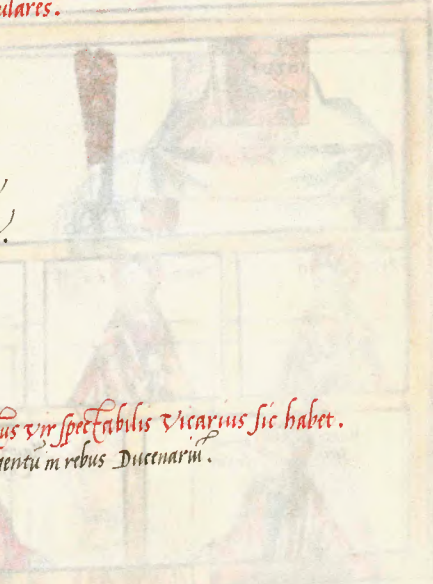 ulares.
us vir spectabilis Vicarius sic habet.
gentū in rebus Ducenariū.